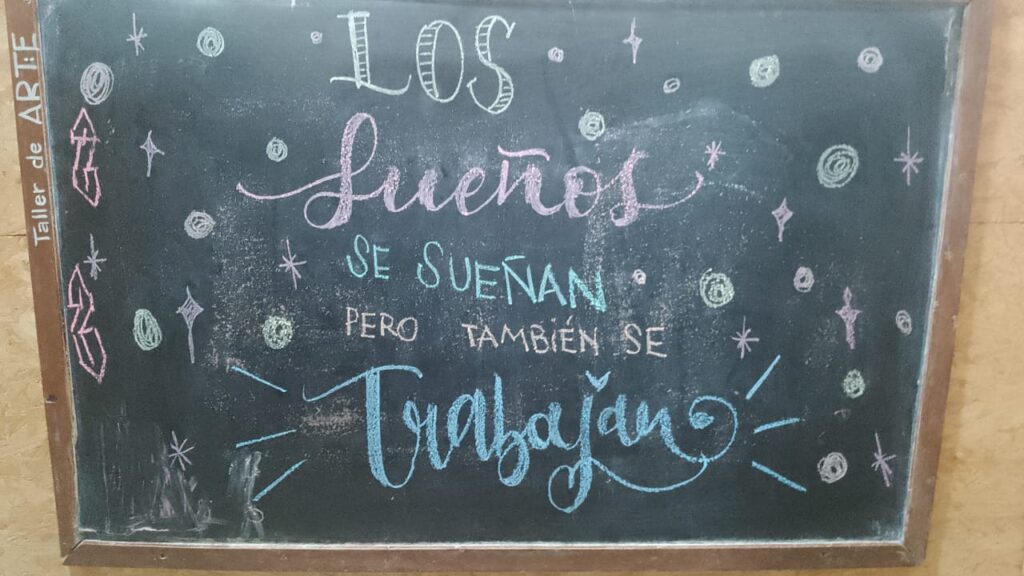 Taller de ARTE
LOS
Sueños
SE SUEÑAN
PERO TAMBIÉN SE
Trabajan